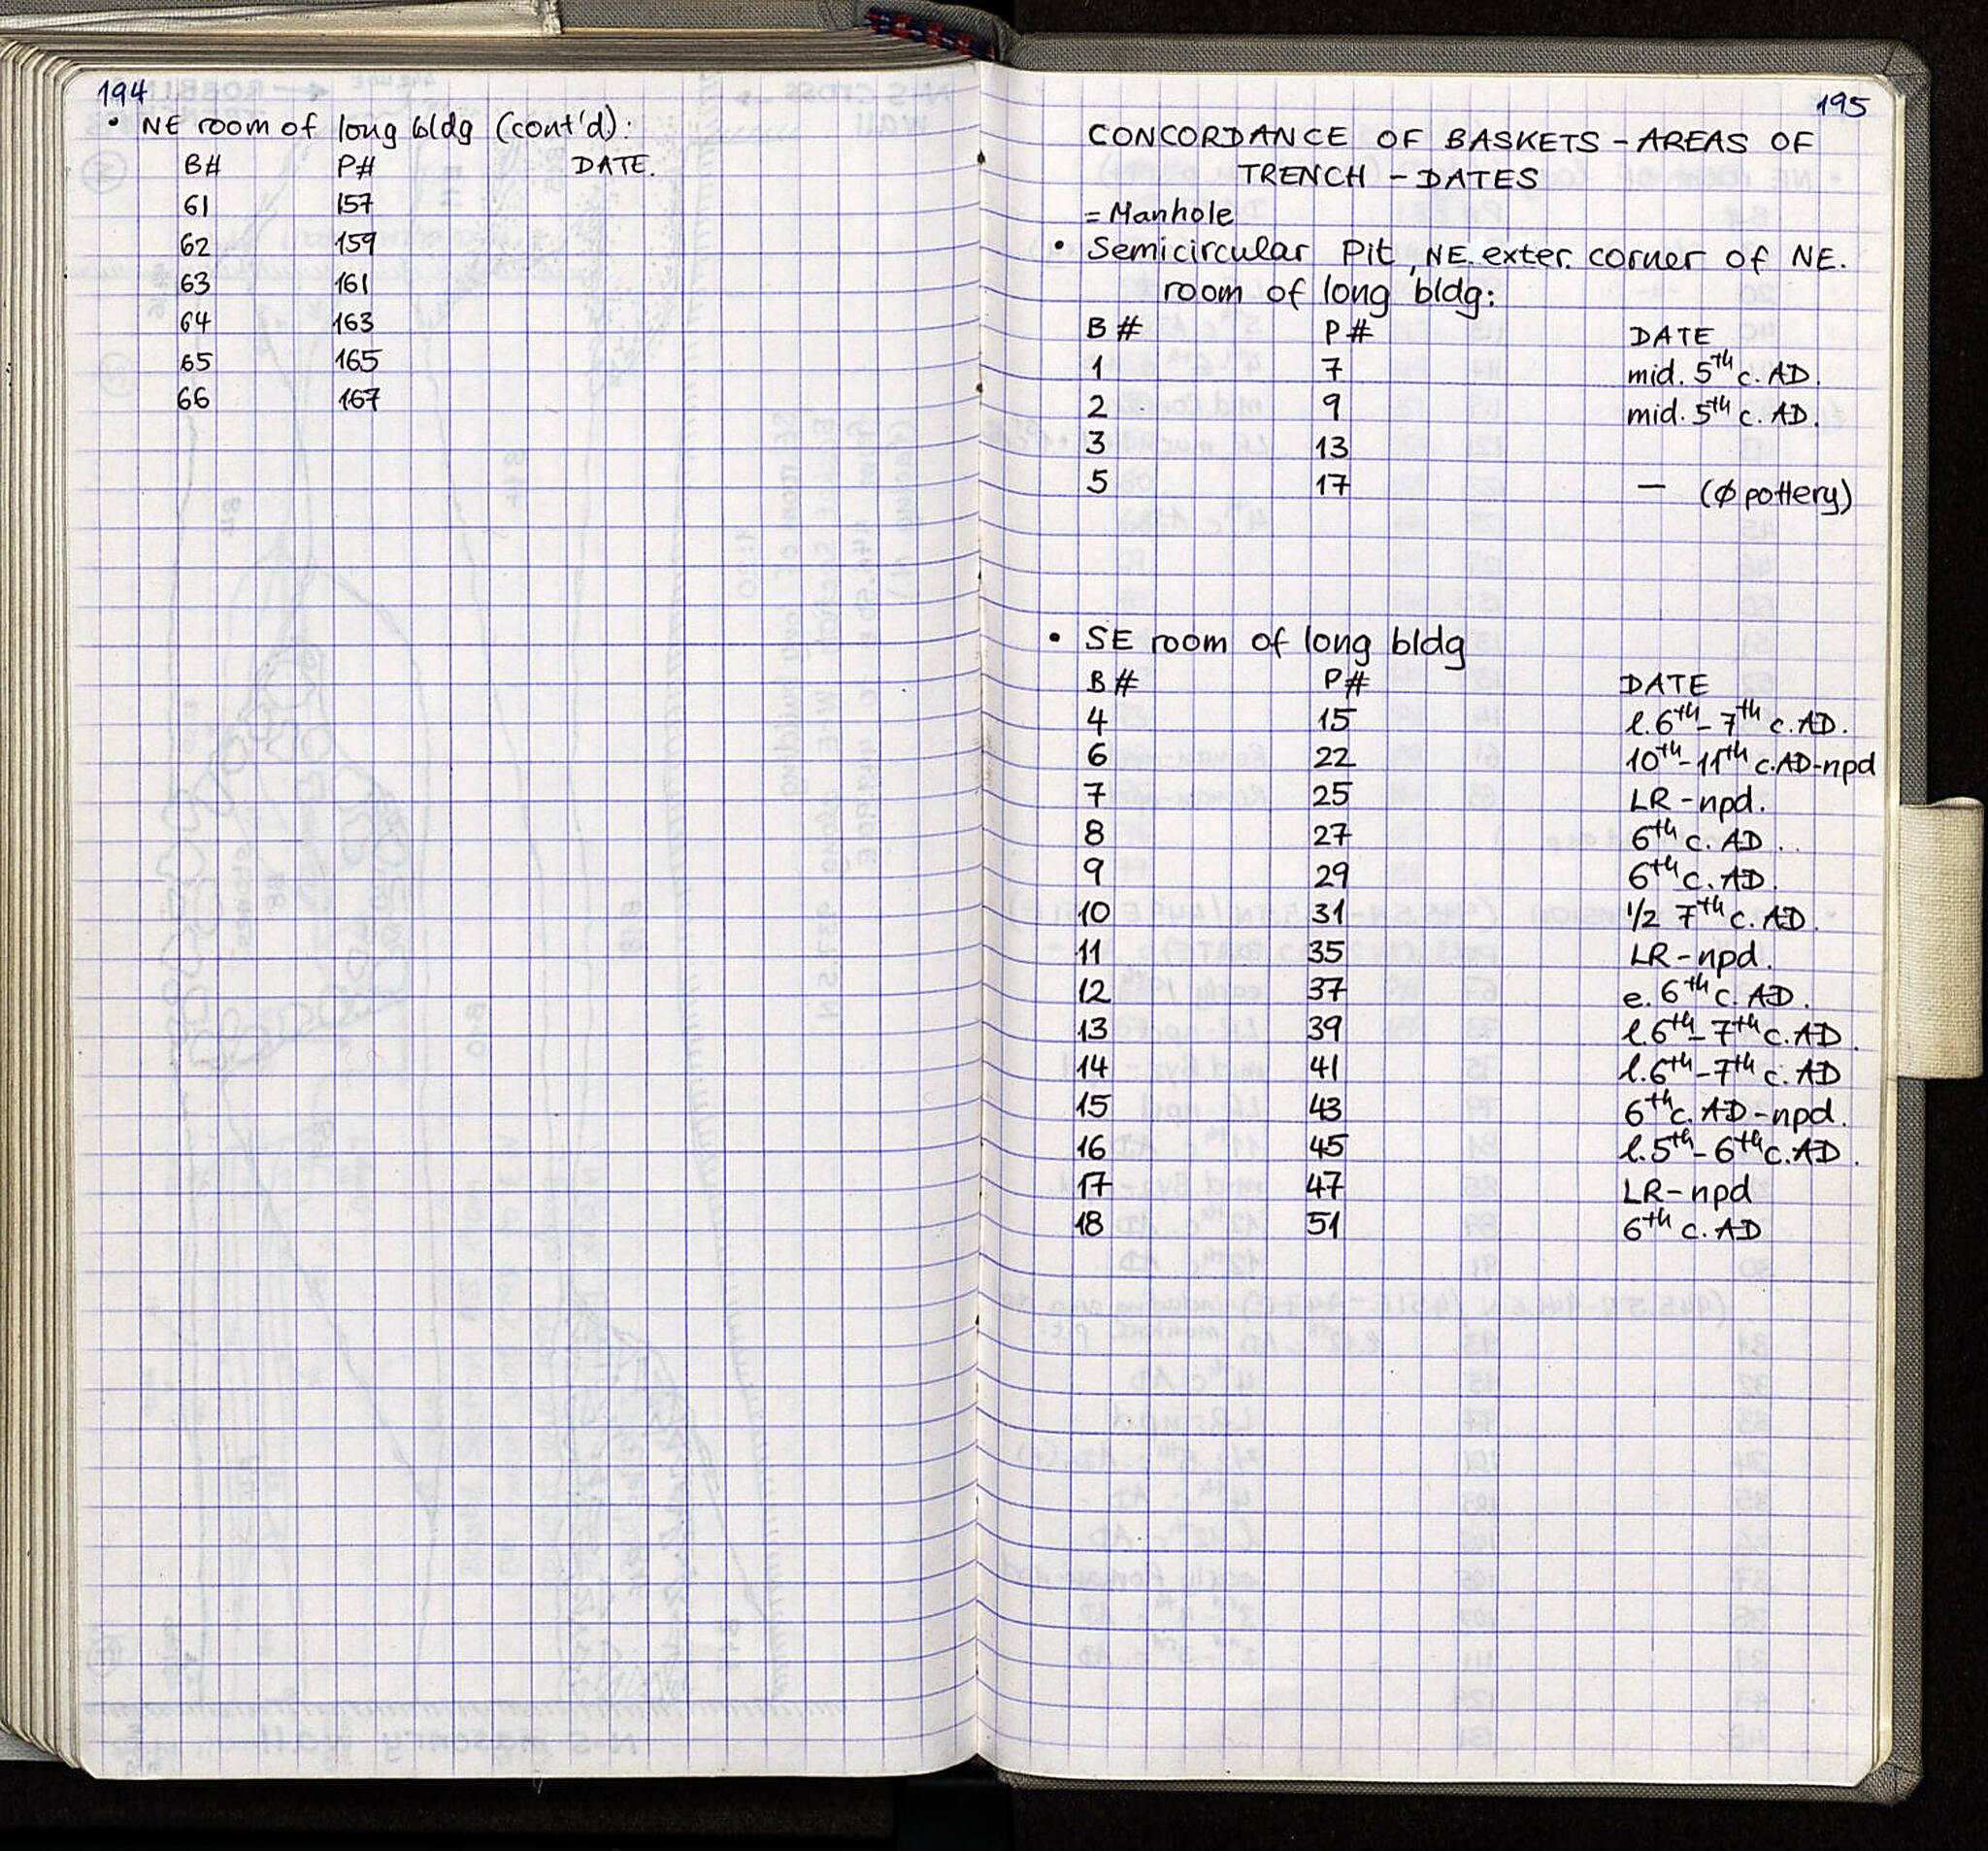 194
• NE room of long bldg (cont'd):
B# P# DATE.
61 157
62 159
63 161
64 163
65 165
66 167
195
CONCORDANCE OF BASKETS – AREAS OF
TRENCH – DATES
= Manhole
• Semicircular Pit, NE. exter. corner of NE.
room of long bldg:
B # P # DATE
1 7 mid. 5th c. AD.
2 9 mid. 5th c. AD.
3 13
5 17 — (ϕ pottery)
• SE room of long bldg
B # P# DATE
4 15 l. 6th – 7th c. AD.
6 22 10th – 11th c. AD-npd
7 25 LR – npd.
8 27 6th c. AD.
9 29 6th c. AD.
10 31 1/2 7th c. AD.
11 35 LR – npd.
12 37 e. 6th c. AD.
13 39 l. 6th – 7th c. AD.
14 41 l. 6th – 7th c. AD
15 43 6th c. AD – npd.
16 45 l. 5th – 6th c. AD.
17 47 LR – npd
18 51 6th c. AD